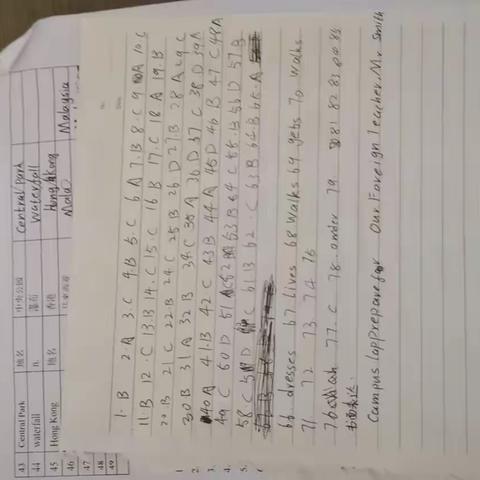 43 Central Park 地名 中央公园 Central Park
44 waterfall n. 瀑布 Waterfall
45 Hong Kong 地名 香港 Hong Kong
46 Malaysia
47
48
49
1. B 2. A 3. C 4. B 5. C 6 A 7. B 8. C 9 A 10. C
11 B 12. C 13. B 14. C 15. C 16 B 17. C 18 A 19. B
20 B 21 C 22. B 24. C 25 B 26 D 27 B 28 A 29 C
30 B 31 A 32 B 34. C 35 A 36 D 37 C 38 D 39 A
40 A 41. B 42 C 43 B 44 A 45 D 46 B 47 C 48 A
49 C 50 D 51 53 B 54 C 55. B 56 D 57 B
58 C D C 61 B 62. C 63 B 64 B 65. A
66 dresses 67 lives 68 walks 69 gets 70 walks
71 72 73 74 76
76 77. C 78. order 79 81 82 83
书面表达.
Campus Our Foreign Teacher, Mr. Smith